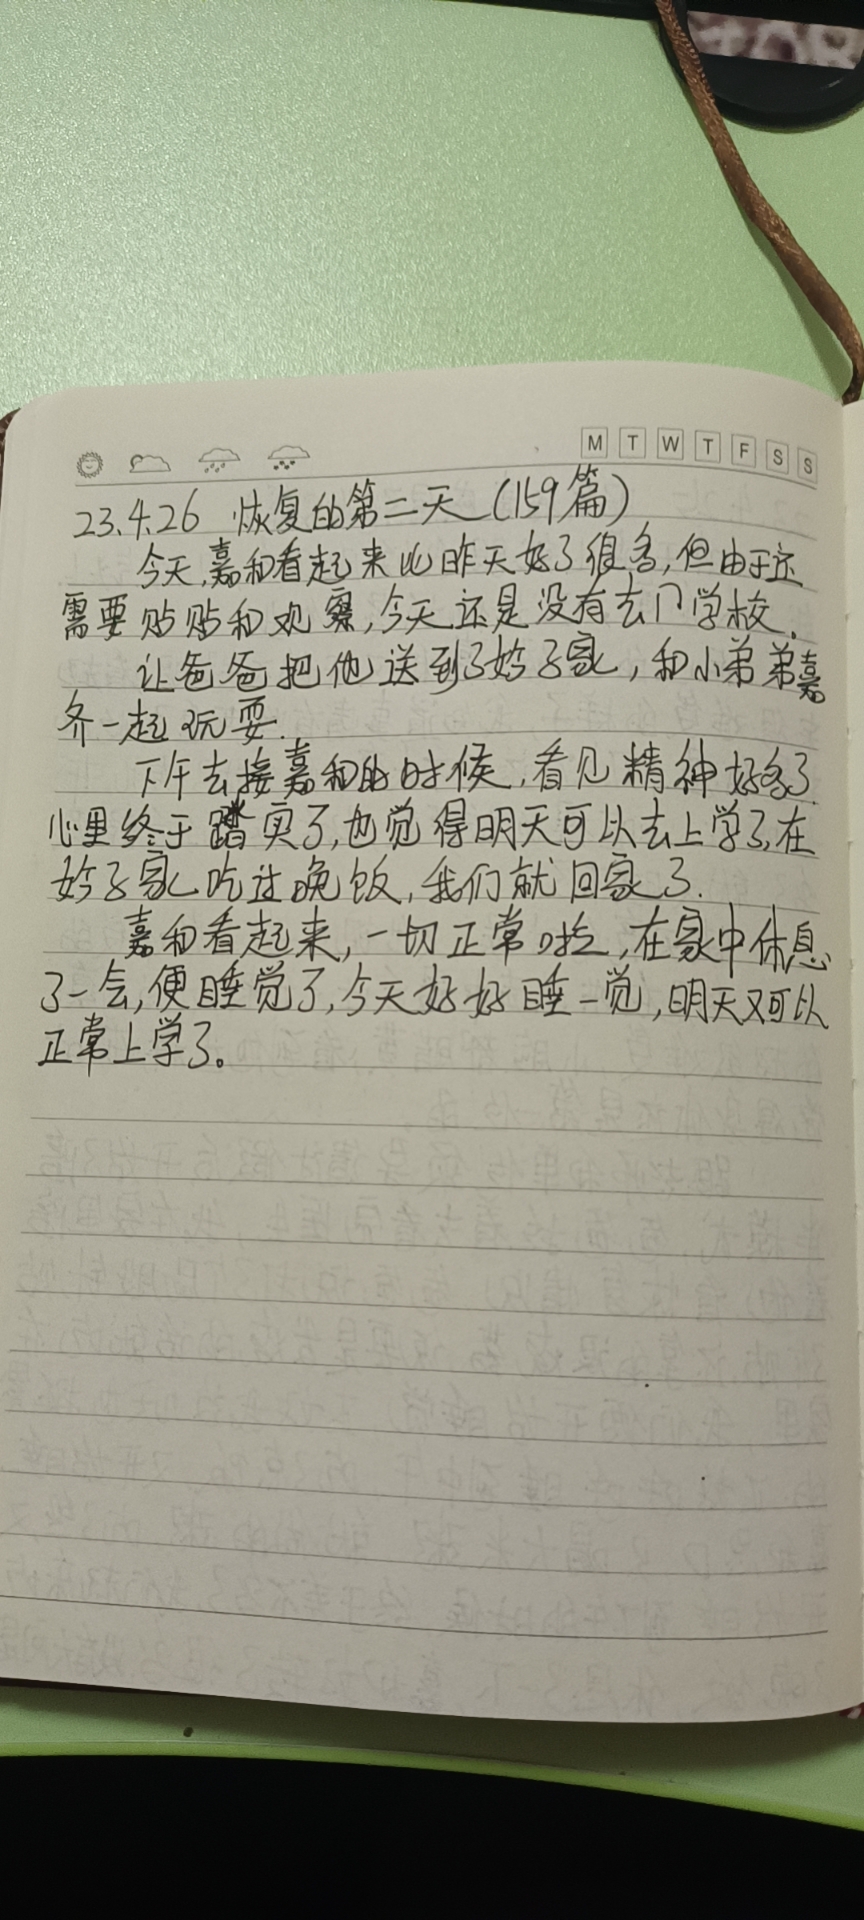 M T W T F S S
23.4.26 恢复的第二天(159篇)
今天,嘉和看起来比昨天好了很多,但由于还
需要贴贴和观察,今天还是没有去学校.
让爸爸把他送到了妗子家,和小弟弟嘉
齐一起玩耍.
下午去接嘉和的时候,看见精神好多了
心里终于踏实了,也觉得明天可以去上学了,在
妗子家吃过晚饭,我们就回家了.
嘉和看起来,一切正常啦,在家中休息
了一会,便睡觉了,今天好好睡一觉,明天又可以
正常上学了。